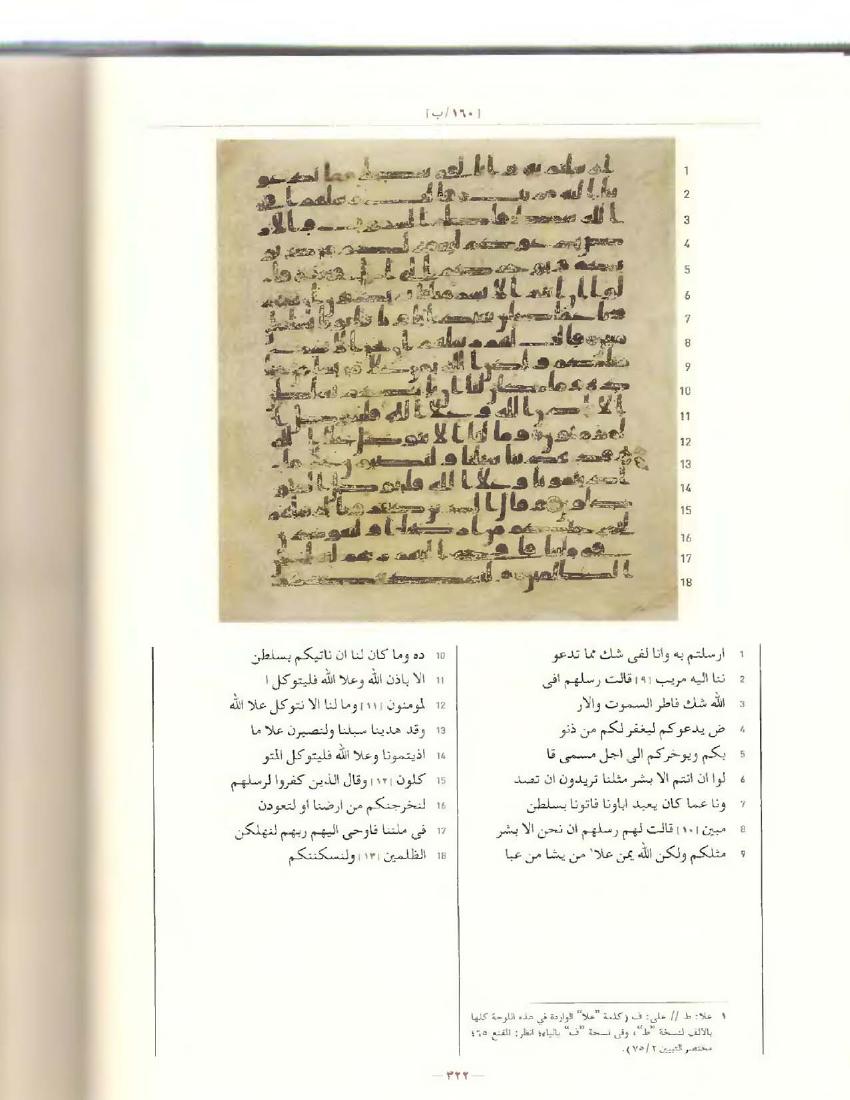 [١٦٠/ب]
1 ارسلتم به وانا لفى شك مما تدعو
2 ننا اليه مريب [٩] قالت رسلهم افى
3 الله شك فاطر السموت والار
4 ض يدعوكم ليغفر لكم من ذنو
5 بكم ويوخركم الى اجل مسمى قا
6 لوا ان انتم الا بشر مثلنا تريدون ان تصد
7 ونا عما كان يعبد اباونا فاتونا بسلطن
8 مبين [١٠] قالت لهم رسلهم ان نحن الا بشر
9 مثلكم ولكن الله يمن علا١ من يشا من عبا
10 ده وما كان لنا ان ناتيكم بسلطن
11 الا باذن الله وعلا الله فليتوكل ا
12 لمومنون [١١] وما لنا الا نتوكل علا الله
13 وقد هدينا سبلنا ولنصبرن علا ما
14 اذيتمونا وعلا الله فليتوكل المتو
15 كلون [١٢] وقال الذين كفروا لرسلهم
16 لنخرجنكم من ارضنا او لتعودن
17 فى ملتنا فاوحى اليهم ربهم لنهلكن
18 الظلمين [١٣] ولنسكننكم
١ علا: ط // على: ف (كلمة "علا" الواردة في هذه اللوحة كلها
بالألف لنسخة "ط"، وفي نسخة "ف" بالياء؛ انظر: المقنع ٦٥؛
مختصر التبيين ٧٥/٢).
— ٣٢٢ —